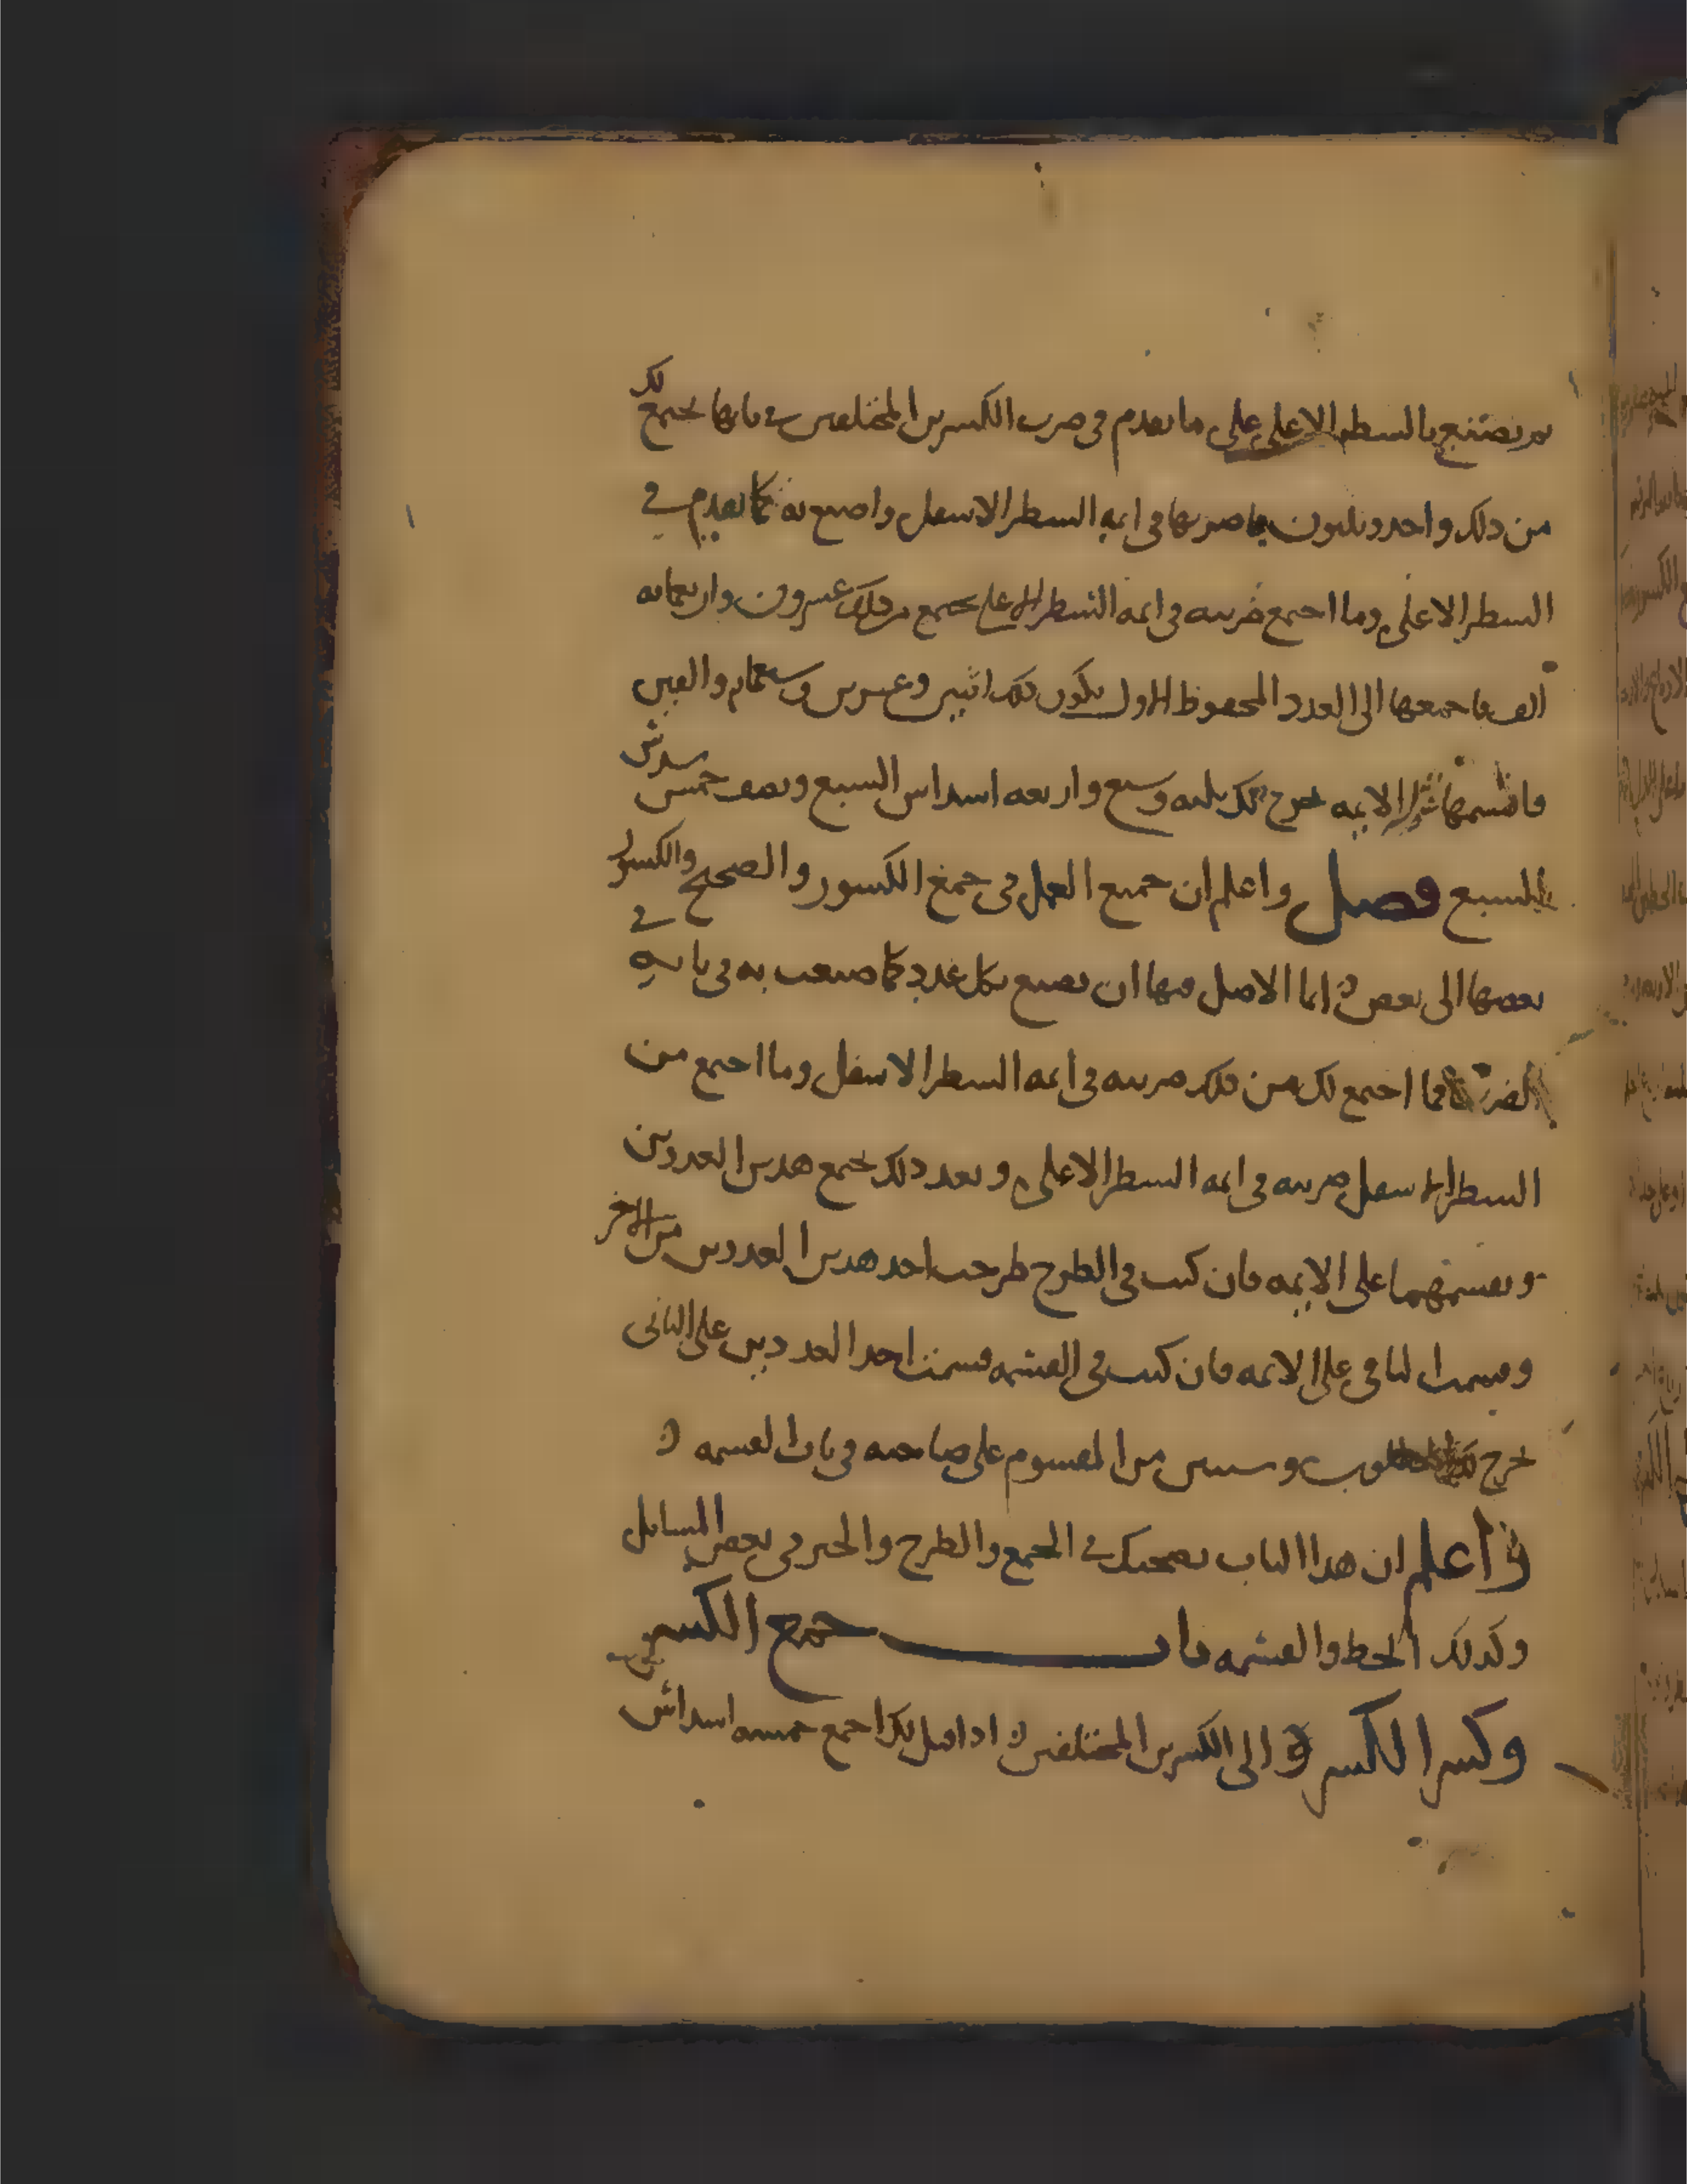 ثم تصنع بالسطر الاعلى على ما تقدم في ضرب الكسرين المختلفين في بابها يجتمع لك
من ذلك واحد وثلثون فاضربها في ايمة السطر الاسفل واصنع به كما تقدم في
السطر الاعلى وما اجتمع ضربته في ايمه السطر الاعلى يجتمع من ذلك عشرون واربعمايه
الف فاجمعها الى العدد المحفوظ الاول يكون ذلك اثنين وعشرين وسبعمايه والفين
فاقسمها على الايمه يخرج لك ثلثه وسبع واربعه اسداس السبع ونصف خمس سدس
السبع فصل واعلم ان جميع العمل في جمع الكسور والصحيح والكسور
بعضها الى بعض انما الاصل فيها ان تصنع بكل عدد كما صنعت به في بابه في
الضرب فما اجتمع لك من ذلك ضربته في ايمه السطر الاسفل وما اجتمع من
السطر الاسفل ضربته في ايمه السطر الاعلى وبعد ذلك تجمع هذين العددين
وتقسمهما على الايمه فان كنت في الطرح طرحت احد هذين العددين من الاخر
وقسمت الباقي على الايمه فان كنت في القسمه قسمت احد العددين على الثاني
خرج المطلوب وسنبين من المقسوم على صاحبه في باب القسمه
واعلم ان هذا الباب يصحبك في الجمع والطرح والجبر في بعض المسايل
وكذلك الحط والقسمه باب جمع الكسر
وكسر الكسر الى الكسرين المختلفين اذا قيل لك اجمع خمسه اسداس